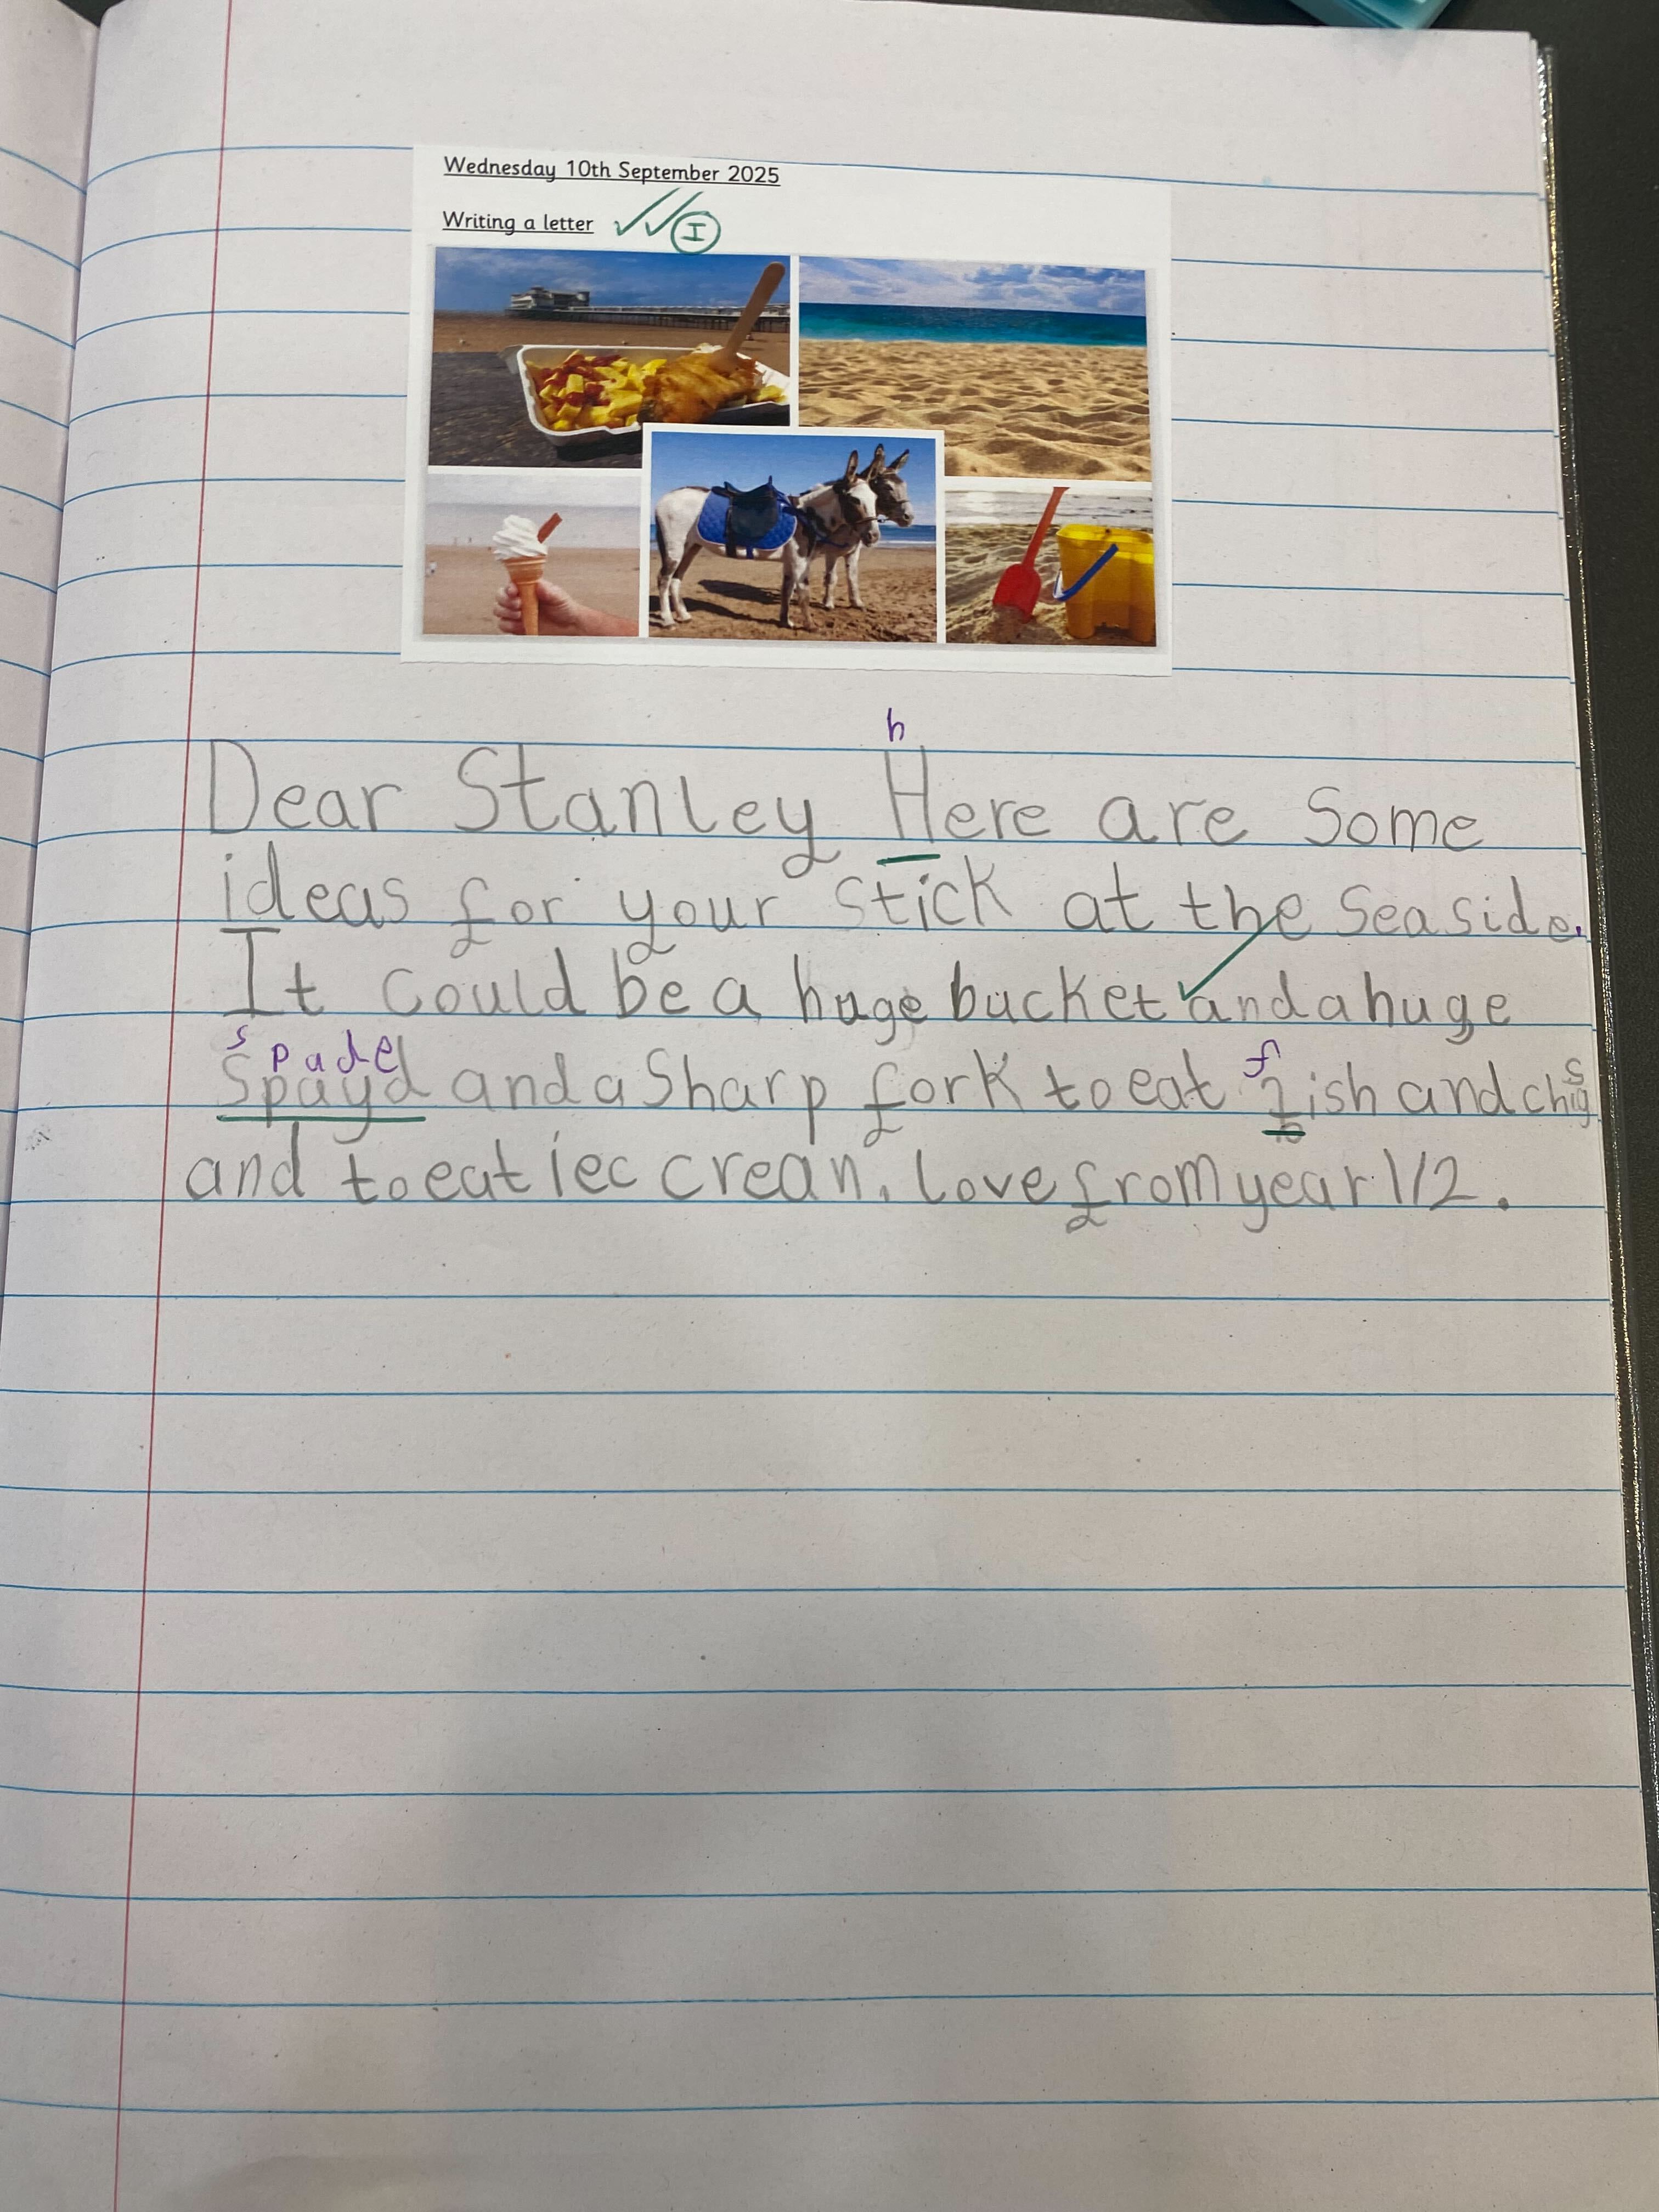 Wednesday 10th September 2025
Writing a letter I
h
Dear Stanley Here are some
ideas for your stick at the seaside.
It could be a huge bucket and a huge
spade
spayd and a sharp fork to eat fish and chips
and to eat iec crean. love from year 1/2.